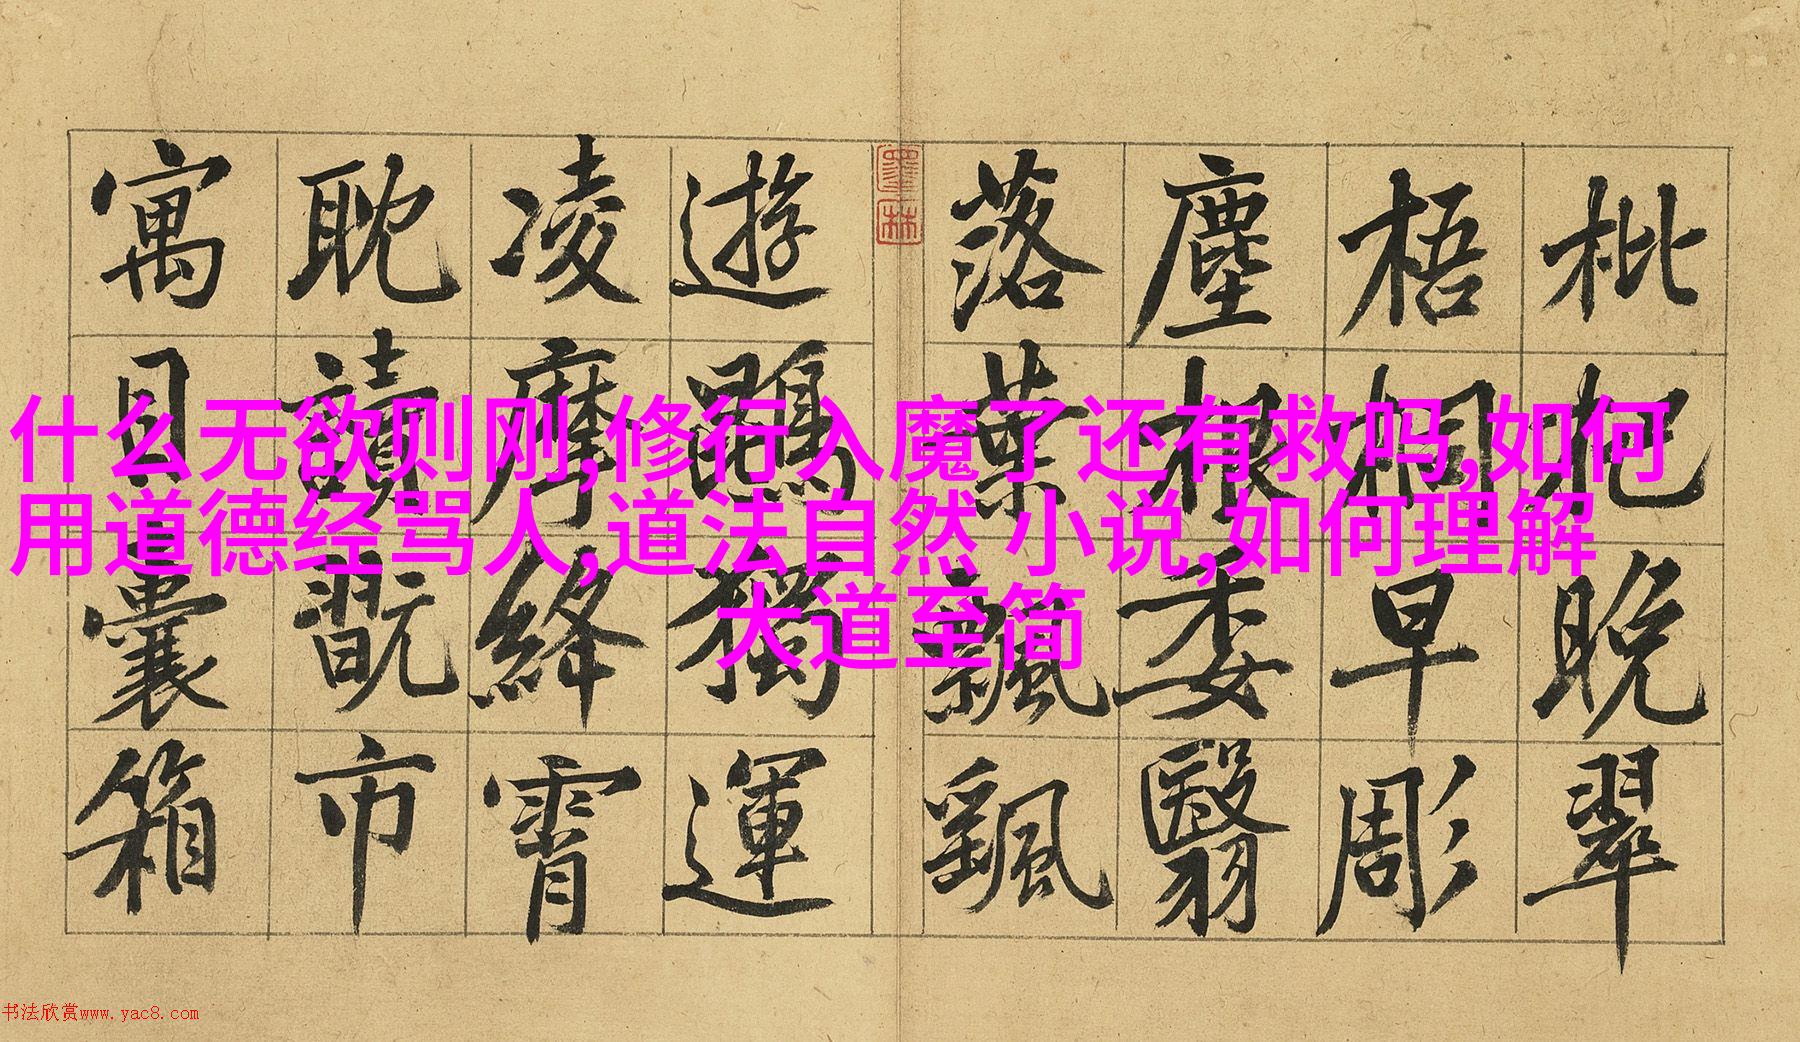 什么无欲则刚,修行入魔了还有救吗,如何
用道德经骂人,道法自然 小说,如何理解
大道至简
枇杷晚翠
梧桐早彫
塵根委翳
落葉飄颻
遊鵾獨運
凌摩絳霄
耽讀翫市
寓目囊箱
墨林
书法欣赏www.yac8.com